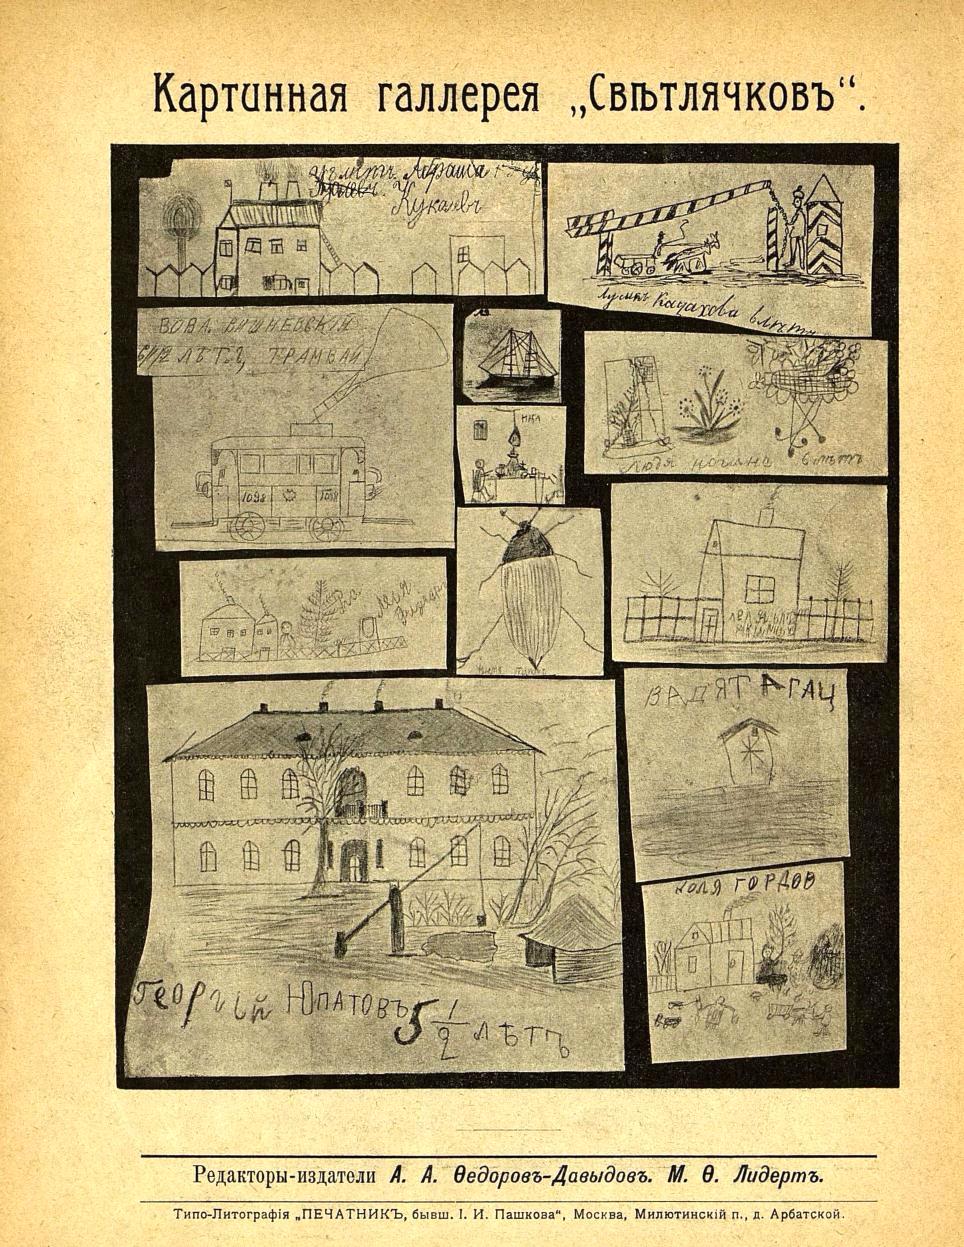 Картинная галлерея „Свѣтлячковъ“.
Кукаевъ
Казахова 6 лѣтъ
ВОВА ВИШНЕВСКІЙ
6 1/2 ЛѢТЪ, ТРАМВАЙ
1098 1098
Людя 6 лѣтъ
ВАДЯ ТАГАЦ
КОЛЯ ГОРДОВ
ГЕОРГІЙ ЮПАТОВЪ 5 1/2 ЛѢТЪ
Редакторы-издатели А. А. Ѳедоровъ-Давыдовъ. М. Ѳ. Лидертъ.
Типо-Литографія „ПЕЧАТНИКЪ, бывш. І. И. Пашкова“, Москва, Милютинскій п., д. Арбатской.